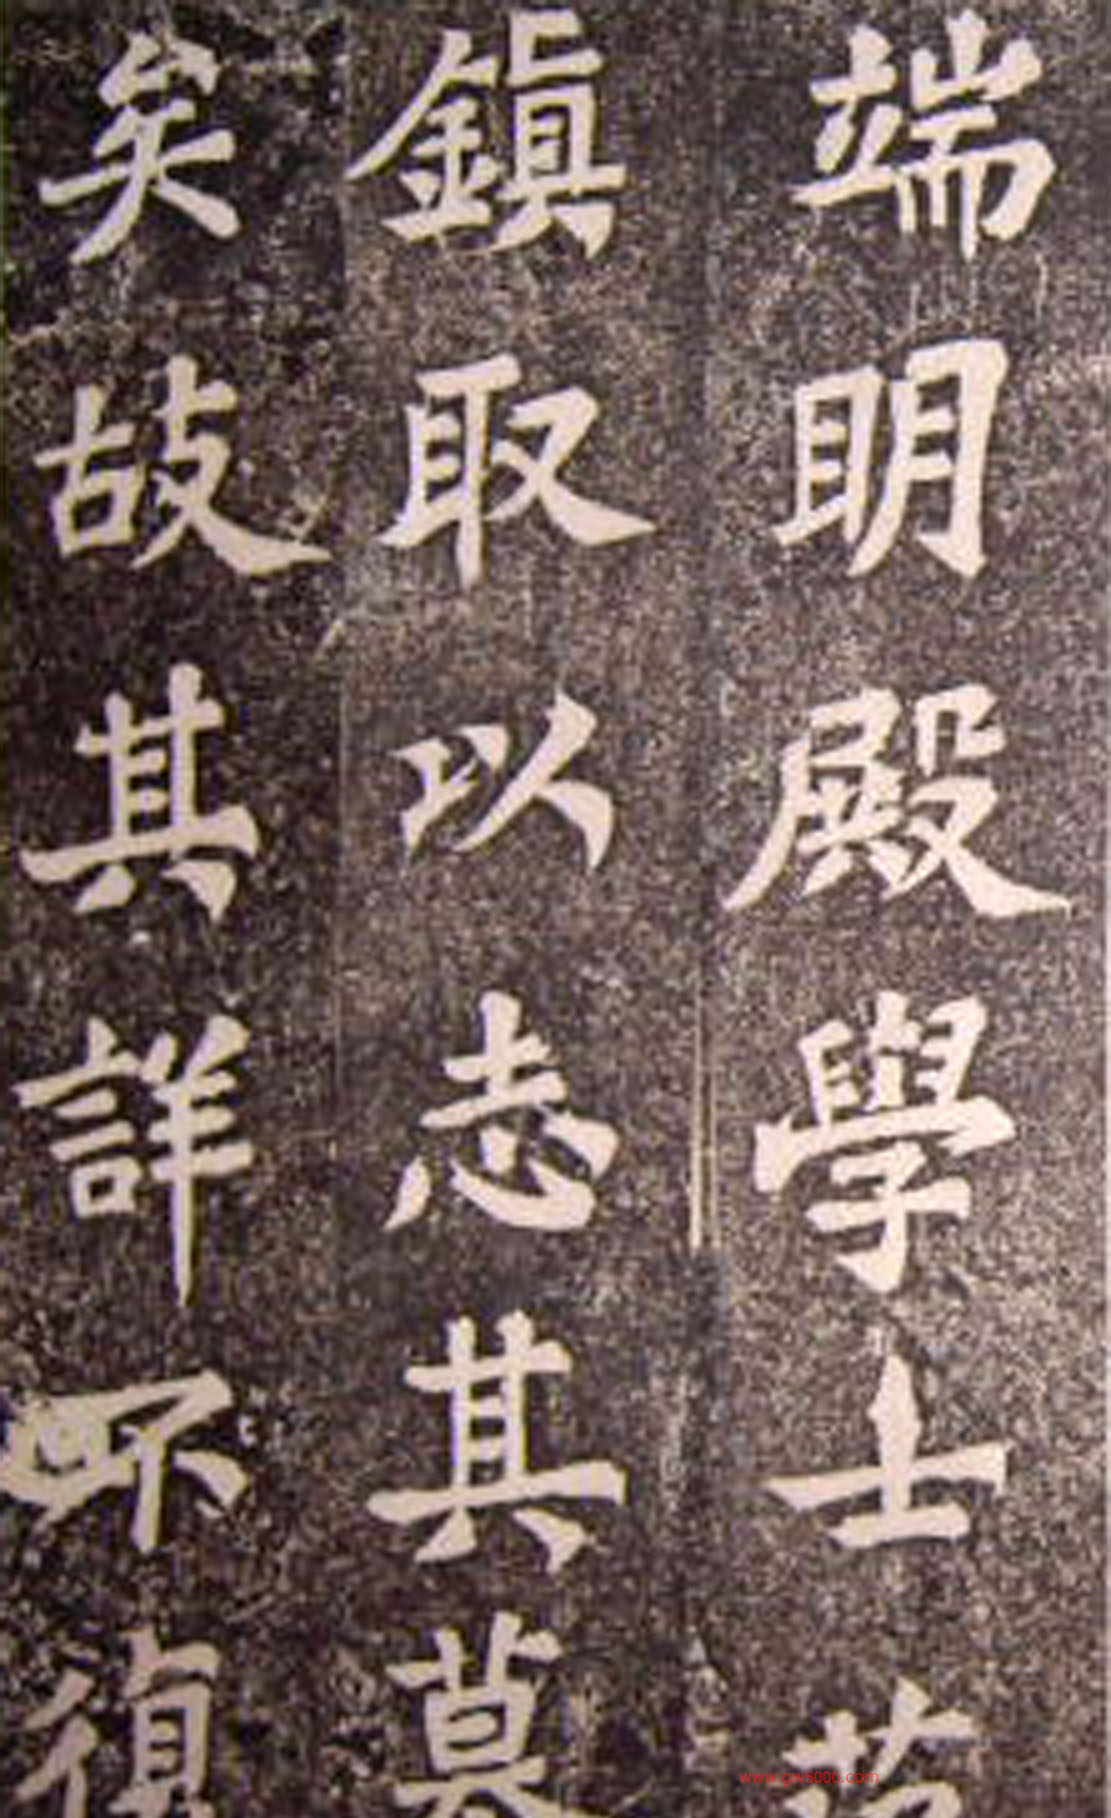 端明殿學士范
鎮取以志其墓
矣故其詳不復
www.gw5000.com